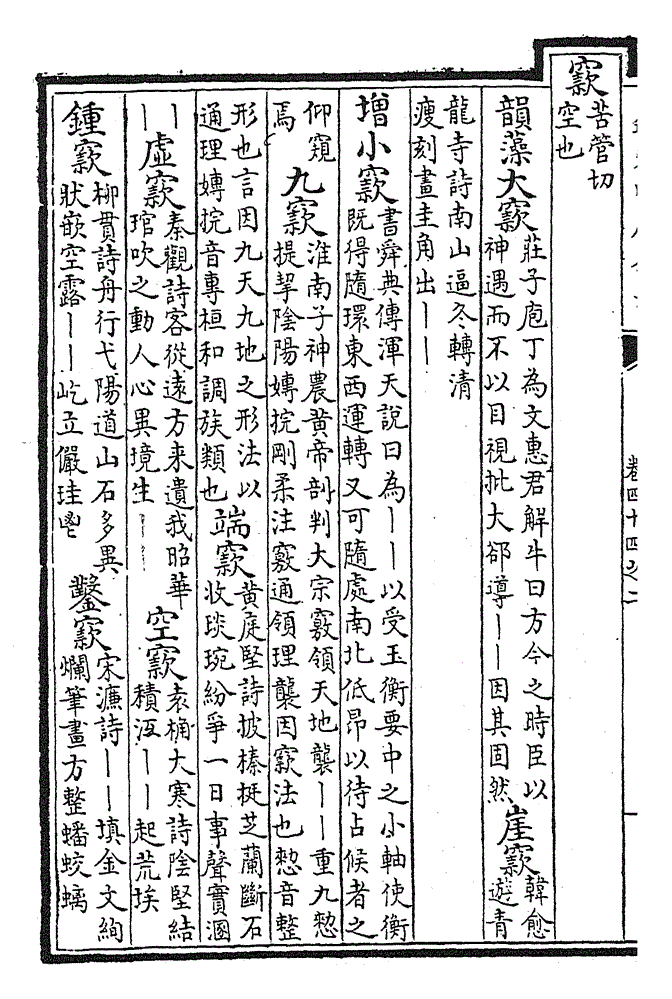 窾苦管切
空也
韻藻大窾莊子庖丁為文惠君解牛曰方今之時臣以
神遇而不以目視批大郤導——因其固然崖窾韓愈
遊青
龍寺詩南山逼冬轉清
瘦刻畫圭角出——
增小窾書舜典傳渾天說曰為——以受玉衡要中之小軸使衡
既得隨環東西運轉又可隨處南北低昂以待占候者之
仰窺
焉九窾淮南子神農黄帝剖判大宗竅領天地襲——重九㙬
提挈陰陽嫥捖剛柔注竅通領理襲因窾法也㙬音整
形也言因九天九地之形法以
通理嫥捖音專桓和調族類也端窾黄庭堅詩披榛挺芝蘭斷石
收琰琬紛爭一日事聲實溷
——虛窾秦觀詩客從遠方来遺我昭華
琯吹之動人心異境生——空窾袁桷大寒詩陰堅結
積沍——起荒埃
鍾窾柳貫詩舟行弋陽道山石多異
狀嵌空露——屹立儼珪鬯鑿窾宋濂詩——填金文絢
爛筆畫方整蟠蛟螭
卷四十四之二